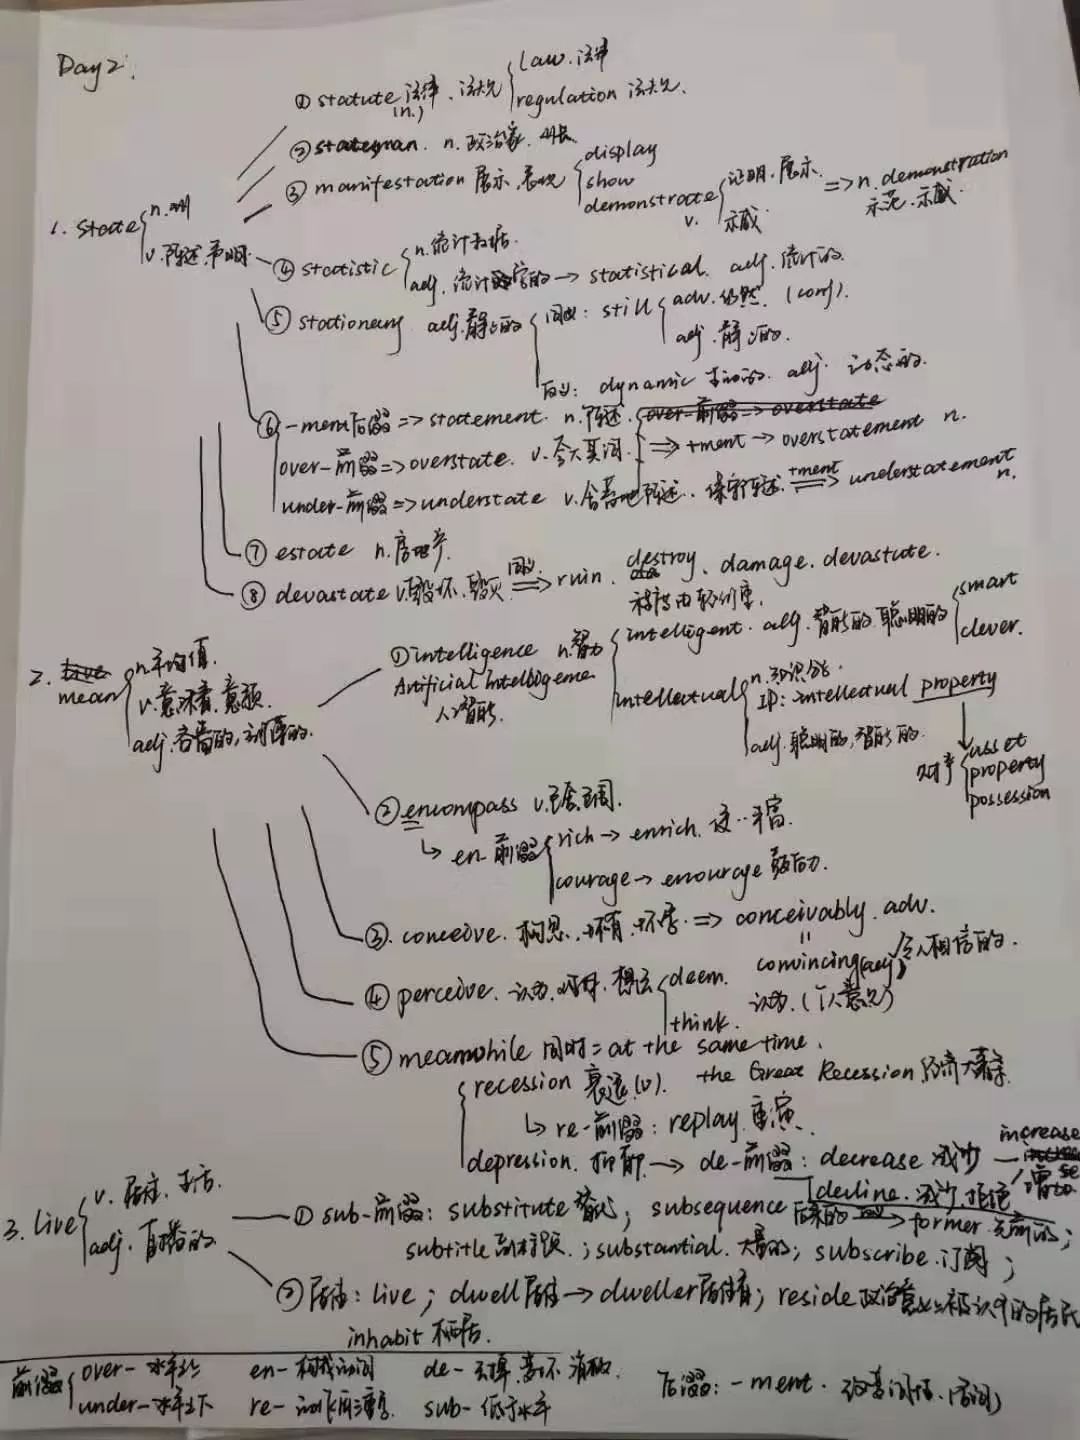 Day 2:
① statute 法律、法规 { law. 法律
(n.) regulation 法规.
② statesman. n. 政治家.
③ manifestation 展示、表现 { display
show
demonstrate v. { 证明、展示. 示威 => n. demonstration 示范、示威.
1. state { n. 州
v. 陈述、声明.
④ statistic { n. 统计数据.
adj. 统计学的 → statistical. adj. 统计的.
⑤ stationary adj. 静止的 { 同义: still { adv. 仍然. (conj).
adj. 静止的.
反义: dynamic adj. 动态的.
⑥ -ment 后缀 => statement. n. 陈述.
over- 前缀 => overstate. v. 夸大其词. => +ment → overstatement n.
under- 前缀 => understate v. 含蓄地陈述、保守陈述. +ment => understatement n.
⑦ estate n. 房地产.
⑧ devastate v. 毁坏、毁灭 同义 => ruin. destroy、damage. devastate.
程度由轻到重.
2. mean { n. 平均值.
v. 意味着、意预.
adj. 吝啬的,刻薄的.
① intelligence n. 智力 { intelligent. adj. 智能的、聪明的 { smart
clever.
Artificial Intelligence
人工智能.
intellectual { n. 知识分子.
IP: intellectual property
adj. 聪明的,智能的.
财产 { asset
property
possession
② encompass v. 包围.
↳ en- 前缀 { rich → enrich. 使…丰富.
courage → encourage 鼓励.
③. conceive. 构思、怀有、怀孕. => conceivably. adv.
④ perceive. 认为、想法 { deem. 认为. (个人意见)
think.
convincing (adj) 令人相信的.
⑤ meanwhile 同时 = at the same time.
{ recession 衰退 (v). the Great Recession 经济大萧条.
↳ re- 前缀: replay. 重演.
depression. 抑郁. → de- 前缀: decrease 减少 — increase
decline. 减少、拒绝
3. live { v. 居住、生活.
adj. 直播的.
① sub- 前缀: substitute 替代; subsequence 后来的 反义 → former. 先前的;
subtitle 副标题.; substantial. 大量的; subscribe. 订阅;
② 居住: live; dwell 居住 → dweller 居住者; reside 政治意义上被认可的居民
inhabit 栖居.
前缀 { over- 水平上 en- 构成动词 de- 去掉、变坏、消极. 后缀: -ment. 改变词性. (名词)
under- 水平下 re- 动作重复 sub- 低于水平